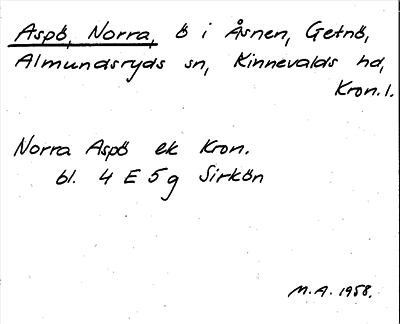 Aspö, Norra, ö i Åsnen, Getnö,
Almundsryds sn, Kinnevalds hd,
Kron. l.
Norra Aspö ek Kron.
bl. 4 E 5 g Sirkön
M.A. 1958.